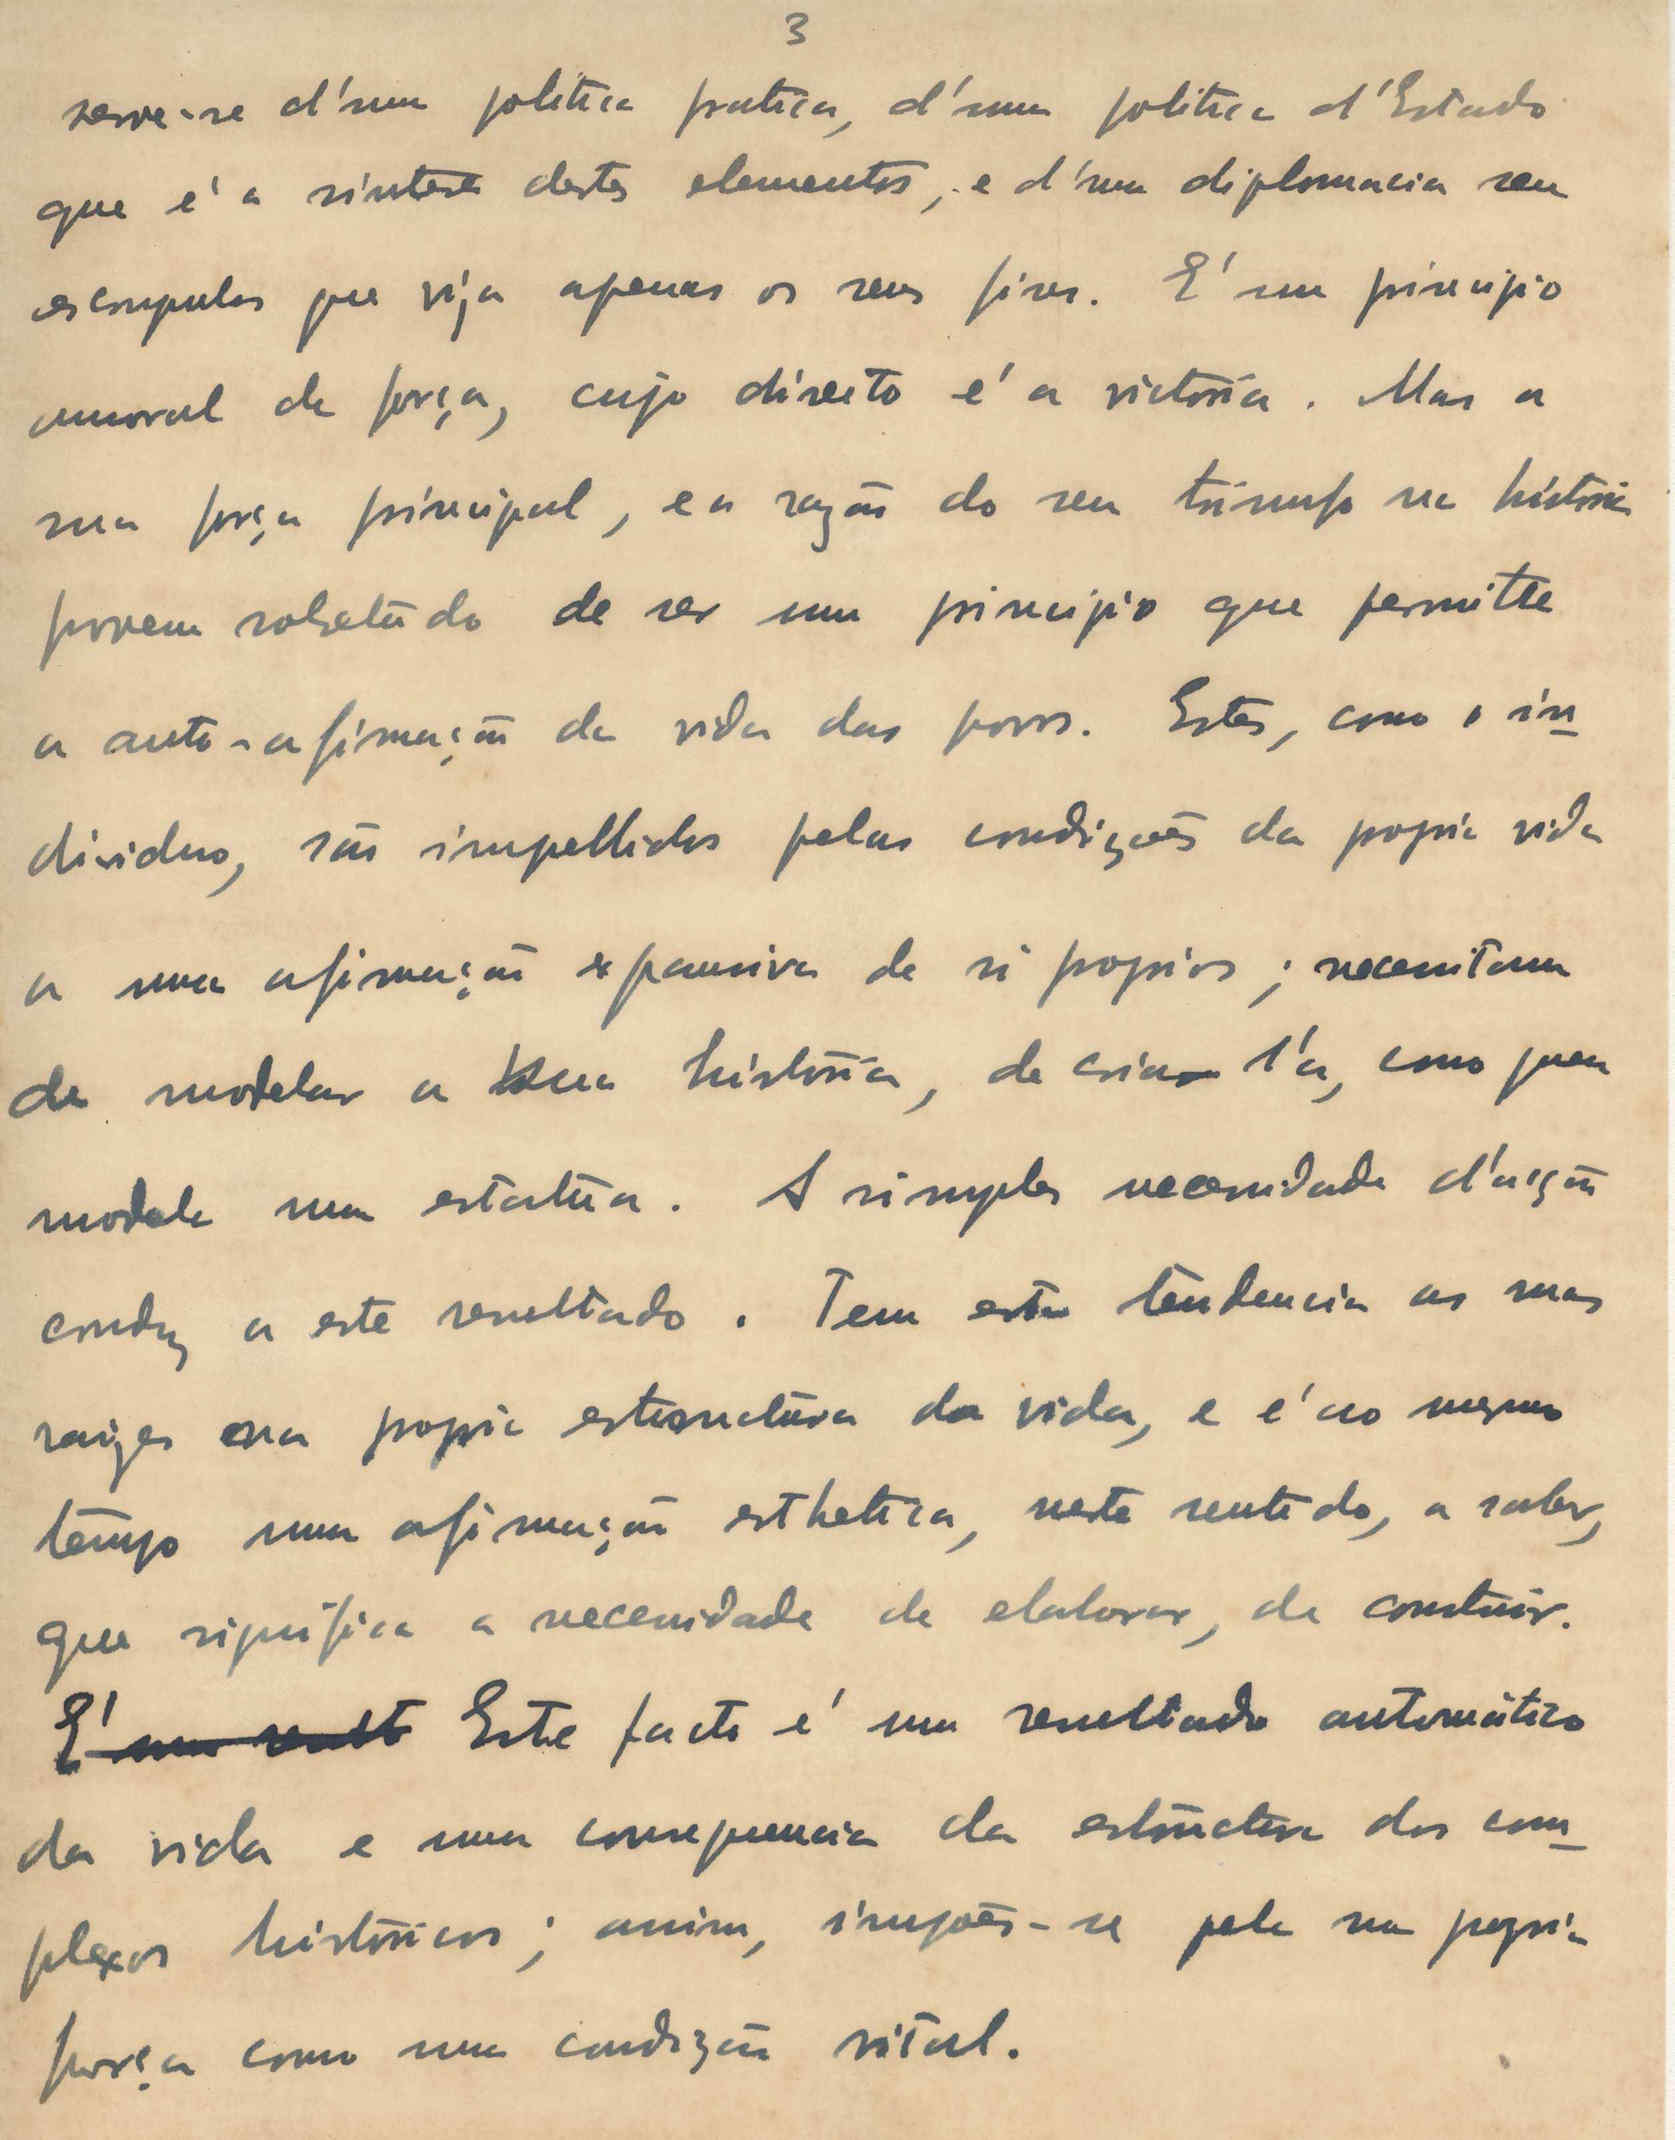 3
serve-se d'uma politica pratica, d'uma politica d'Estado
que é a sintese destes elementos, e d'uma diplomacia sem
escrupulos que visa apenas os seus fins. É um principio
amoral de força, cujo direito é a victoria. Mas a
sua força principal, e a razão do seu triunfo na história
provem sobretudo de ser um principio que permitte
a auto-afirmação da vida dos povos. Estes, como o in-
dividuo, são impellidos pelas condições da propria vida
a uma afirmação expansiva de si proprios; necessitam
de modelar a sua história, de criar l'a, como quem
modela uma estatua. A simples necessidade d'acção
conduz a este resultado. Tem esta tendencia as suas
raizes na propria estructura da vida, e é ao mesmo
tempo uma afirmação esthetica, neste sentido, a saber,
que significa a necessidade de elaborar, de construir.
É um result Este facto é um resultado automático
da vida e uma consequencia da estructura dos com-
plexos históricos; assim, impões-se pela sua propria
força como uma condição vital.